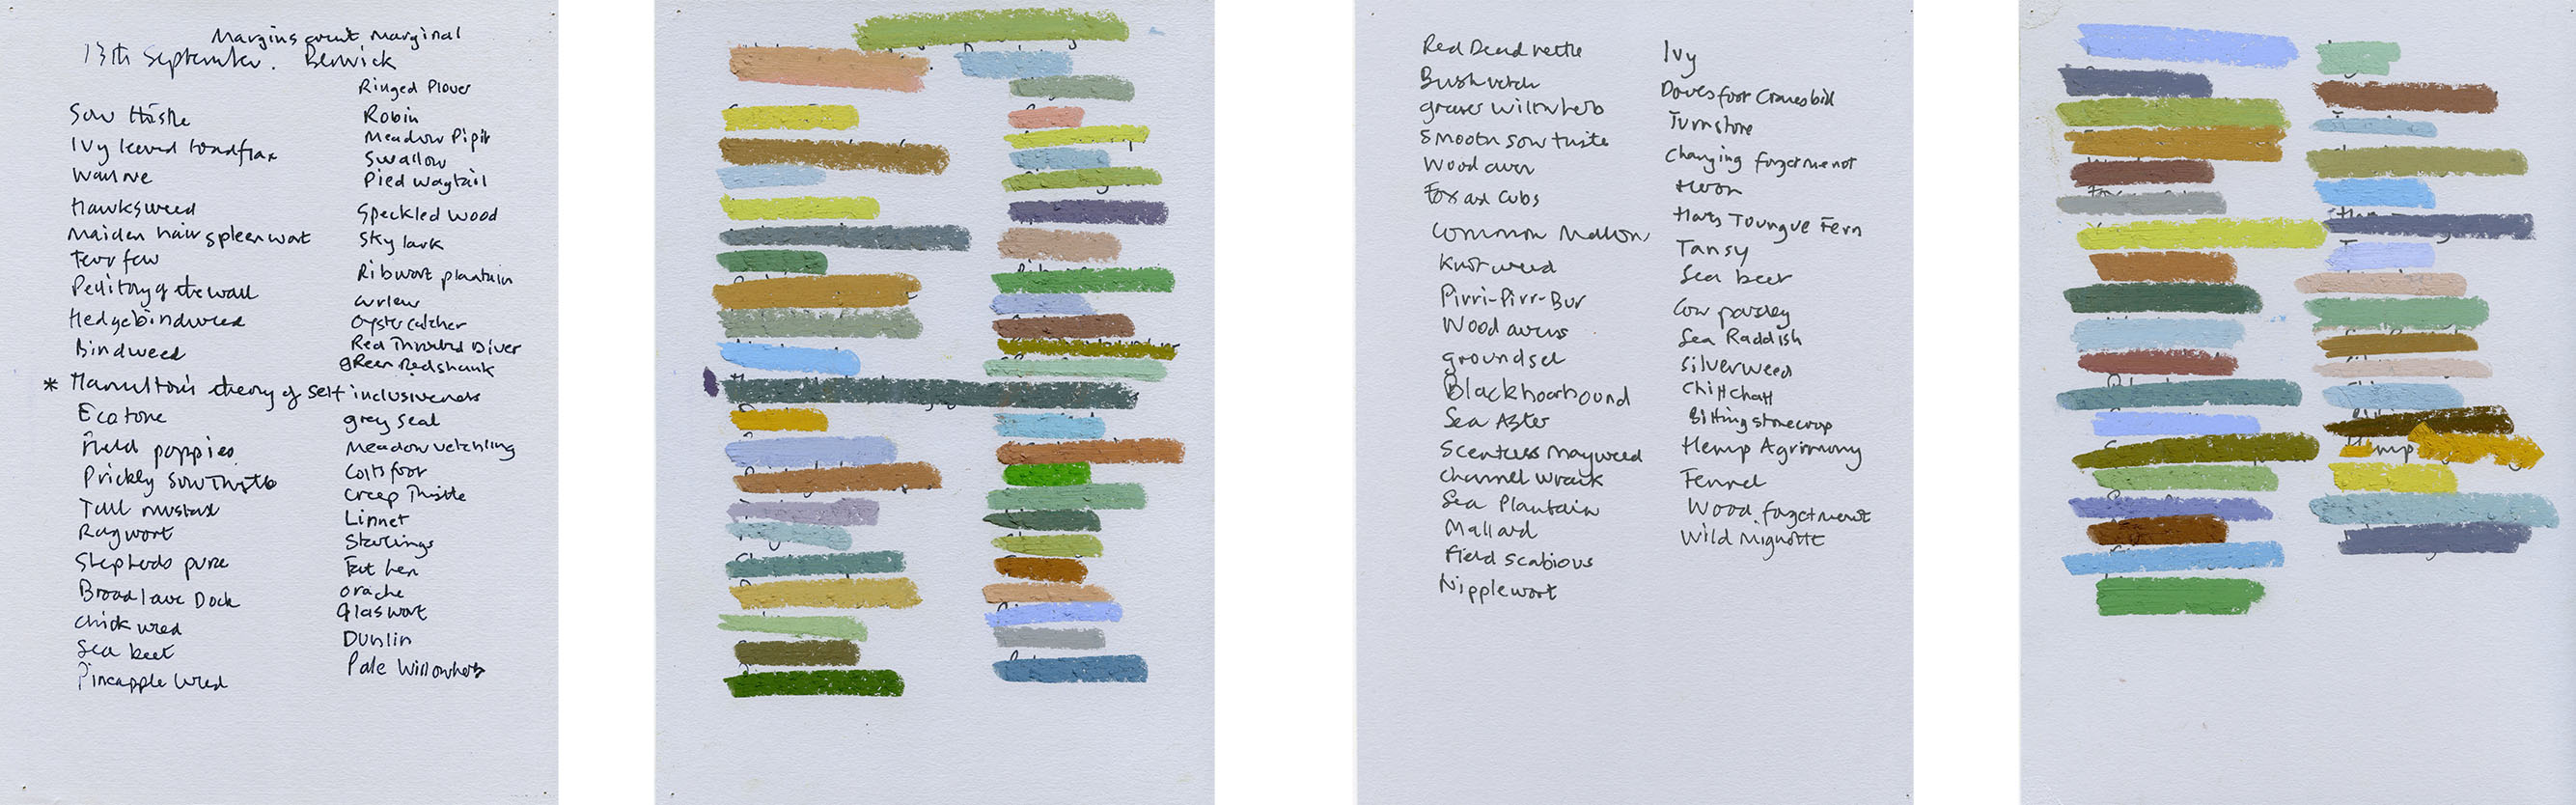 Margins arent marginal
13th September. Berwick
Ringed Plover
Sow thistle
Ivy leaved toadflax
Hawksweed
Maiden hair spleenwort
Fever few
Pellitory of the wall
Hedgebindweed
Bindweed
Robin
Meadow Pipit
Swallow
Pied Wagtail
Speckled Wood
Sky lark
Ribwort plantain
Curlew
Oyster catcher
Red Throated Diver
gReen Redshank
* Hamilton's theory of self inclusiveness
Ecotone
Field poppies
Prickly Sow Thistle
Tall mustard
Ragwort
Shepherds purse
Broad leave Dock
Chick weed
Sea beet
Pineapple Weed
grey seal
Meadow vetchling
Colts foot
Creep Thistle
Linnet
Starlings
Fat hen
Orache
Glaswort
Dunlin
Pale Willowherb
Red Dead nettle
Bush vetch
greater willowherb
Smooth sow thistle
Wood aven
Fox and Cubs
Common Mallow
Knotweed
Pirri-Pirr-Bur
Wood avens
groundsel
Black hoarhound
Sea Aster
Scentless mayweed
Channel wrack
Sea Plantain
Mallard
Field Scabious
Nipplewort
Ivy
Doves foot Cranesbill
Turnstone
Changing forget me not
Heron
Harts Toungue Fern
Tansy
Sea beet
Cow parsley
Sea Raddish
Silverweed
Chiffchaff
Bitting stonecrop
Hemp Agrimony
Fennel
Wood forget me not
Wild Mignotte